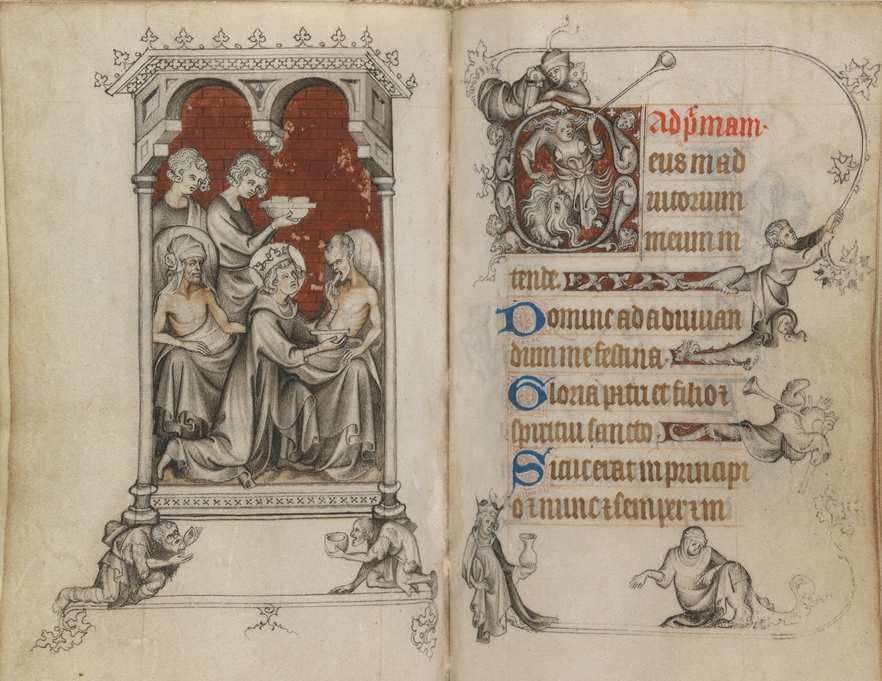 Ad p̃mam.
Deus in ad
iutorium
meum in
tende.
Domine ad adiuuan
dum me festina.
Gloria patri et filio ⁊
spiritui sancto.
Sicut erat in principi
o ⁊ nunc ⁊ semper ⁊ in